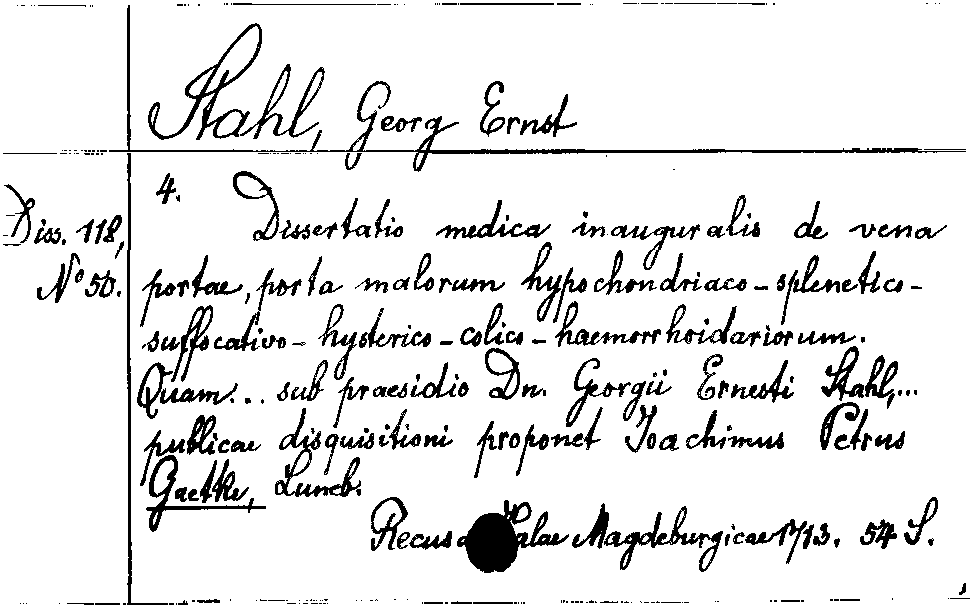 Stahl, Georg Ernst
4.
Diss. 118,
No 50.
Dissertatio medica inauguralis de vena
portae, porta malorum hypochondriaco-splenetico-
suffocativo-hysterico-colico-haemorrhoidariorum.
Quam... sub praesidio Dn. Georgii Ernesti Stahl,...
publicae disquisitioni proponet Ioachimus Petrus
Gaetke, Luneb.
Magdeburgicae 1713. 54 S.